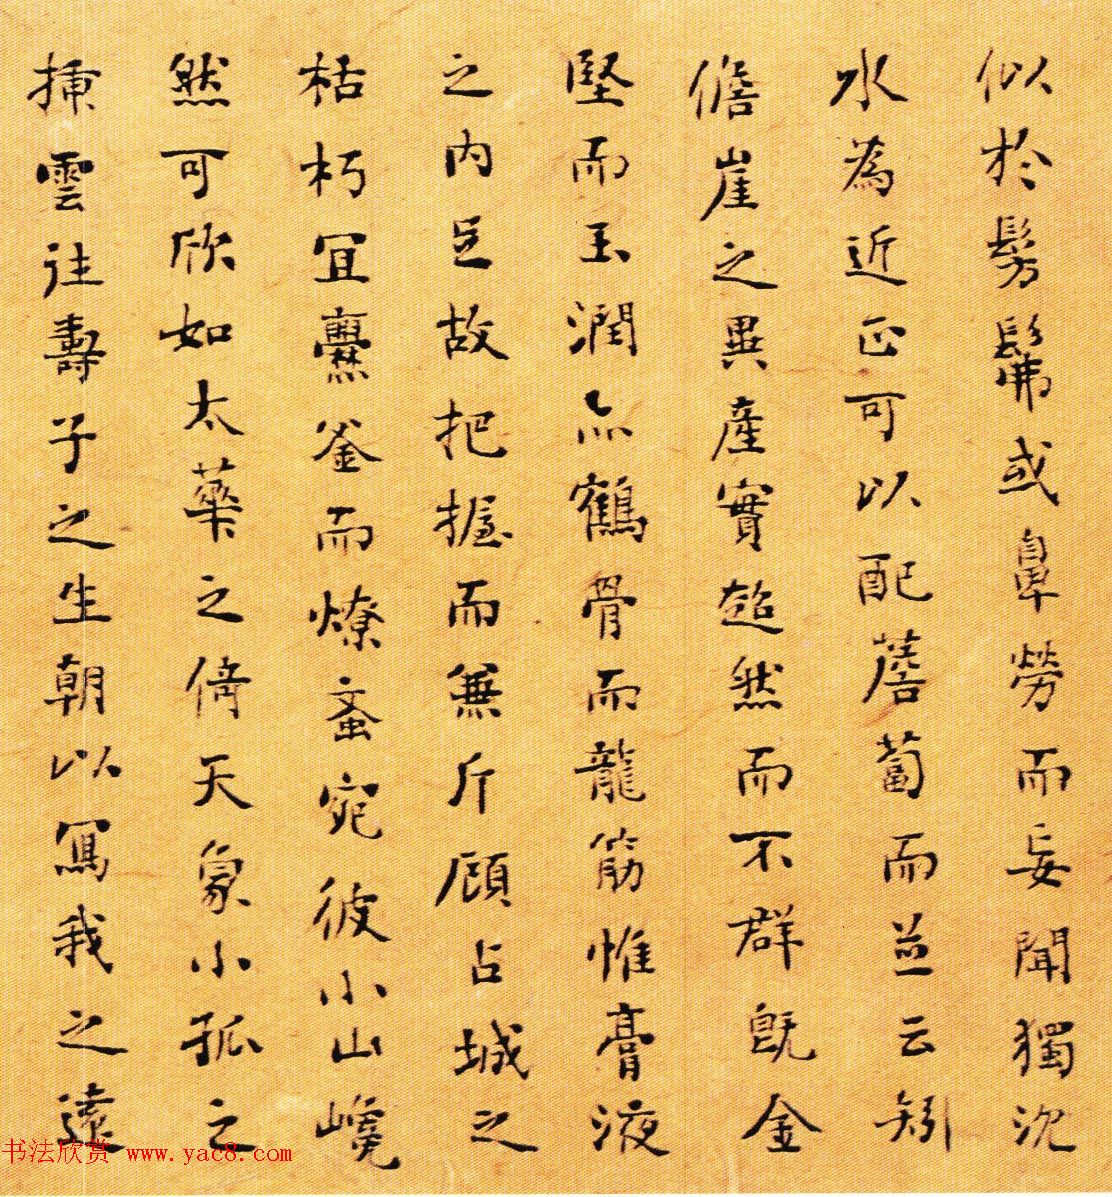 似於髣髴或鼻勞而妄聞獨沈
水為近正可以配薝蔔而並云矧
儋崖之異產實超然而不群既金
堅而玉潤亦鶴骨而龍筋惟膏液
之內足故把握而兼斤顧占城之
枯朽宜爨釜而燎蚉宛彼小山巉
然可欣如太華之倚天象小孤之
插雲往壽子之生朝以寫我之遠
书法欣赏 www.yac8.com